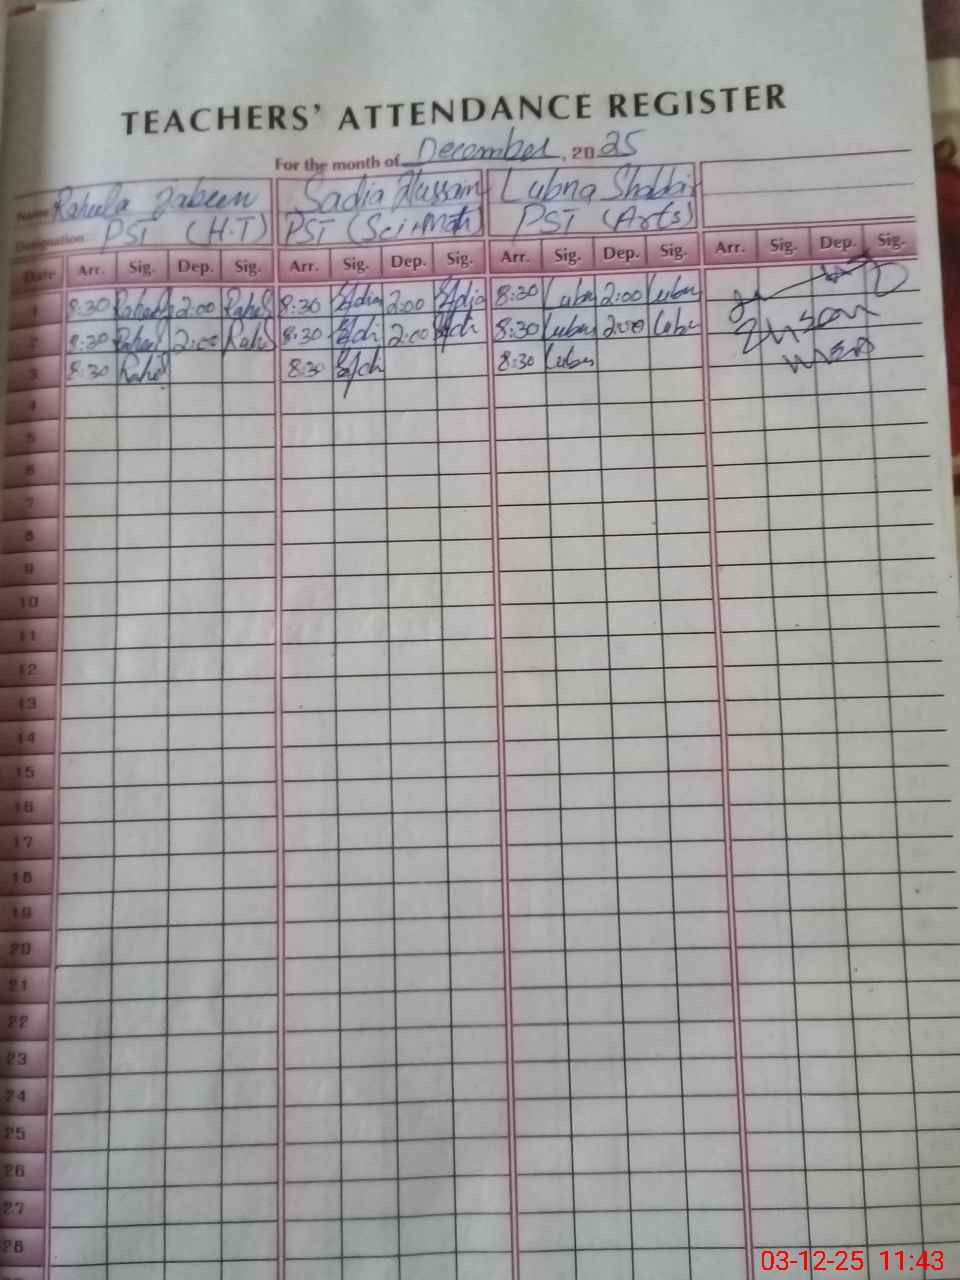 TEACHERS' ATTENDANCE REGISTER
For the month of December, 2025
Name Raheela Jabeen Sadia Hussain Lubna Shabbir
Designation PST (H.T) PST (Sci+Math) PST (Arts)
Date Arr. Sig. Dep. Sig. Arr. Sig. Dep. Sig. Arr. Sig. Dep. Sig. Arr. Sig. Dep. Sig.
1 8:30 2:00 8:30 2:00 8:30 2:00
2 8:30 2:00 8:30 2:00 8:30 2:00
3 8:30 8:30 8:30
4
5
6
7
8
9
10
11
12
13
14
15
16
17
18
19
20
21
22
23
24
25
26
27
28
03-12-25 11:43